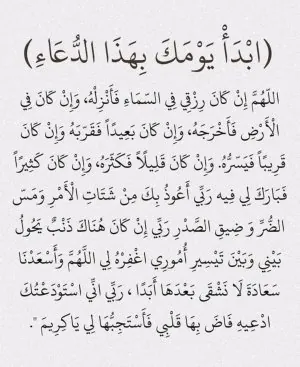 (ابْدَأْ يَوْمَكَ بِهَذَا الدُّعَاءِ)
اللَهُمَّ إِنْ كَانَ رِزْقِي فِي السَمَاءِ فَأَنْزِلْهُ، وَإِنْ كَانَ فِي
الْأَرْضِ فَأَخْرَجَهُ، وَإِنْ كَانَ بَعِيداً فَقَرَبَهُ وَإِنْ كَانَ
قَرِيبًا فَيَسَّرُهُ. وَإِنْ كَانَ قَلِيلًا فَكَثَرَهُ، وَإِنْ كَانَ كَثِيرًا
فَبَارَكَ لِي فِيه رَبِّي أَعُوذُ بِكَ مِنْ شَتَاتِ الْأَمْرِ وَمَسّ
الضُّرِّ وَ ضِيقِ الصَّدْرِ رَبِّي إِنْ كَانَ هُنَاكَ ذَنْبٌ يَحُولُ
بَيْنِي وَبَيْنَ تَيْسِيرِ أُمُورِي اغْفِرْهُ لِي اللَّهُمَّ وَأَسْعَدْنَا
سَعَادَةً لَا نَشْقَى بَعْدَهَا أَبَدًا ، رَبِّي انِّي اسْتَوْدَعْتُكَ
ادْعِيهِ فَاضَ بِهَا قَلْبِي فَأَسْتَجِبُّهَا لِي يَاكَرِيمَ ".